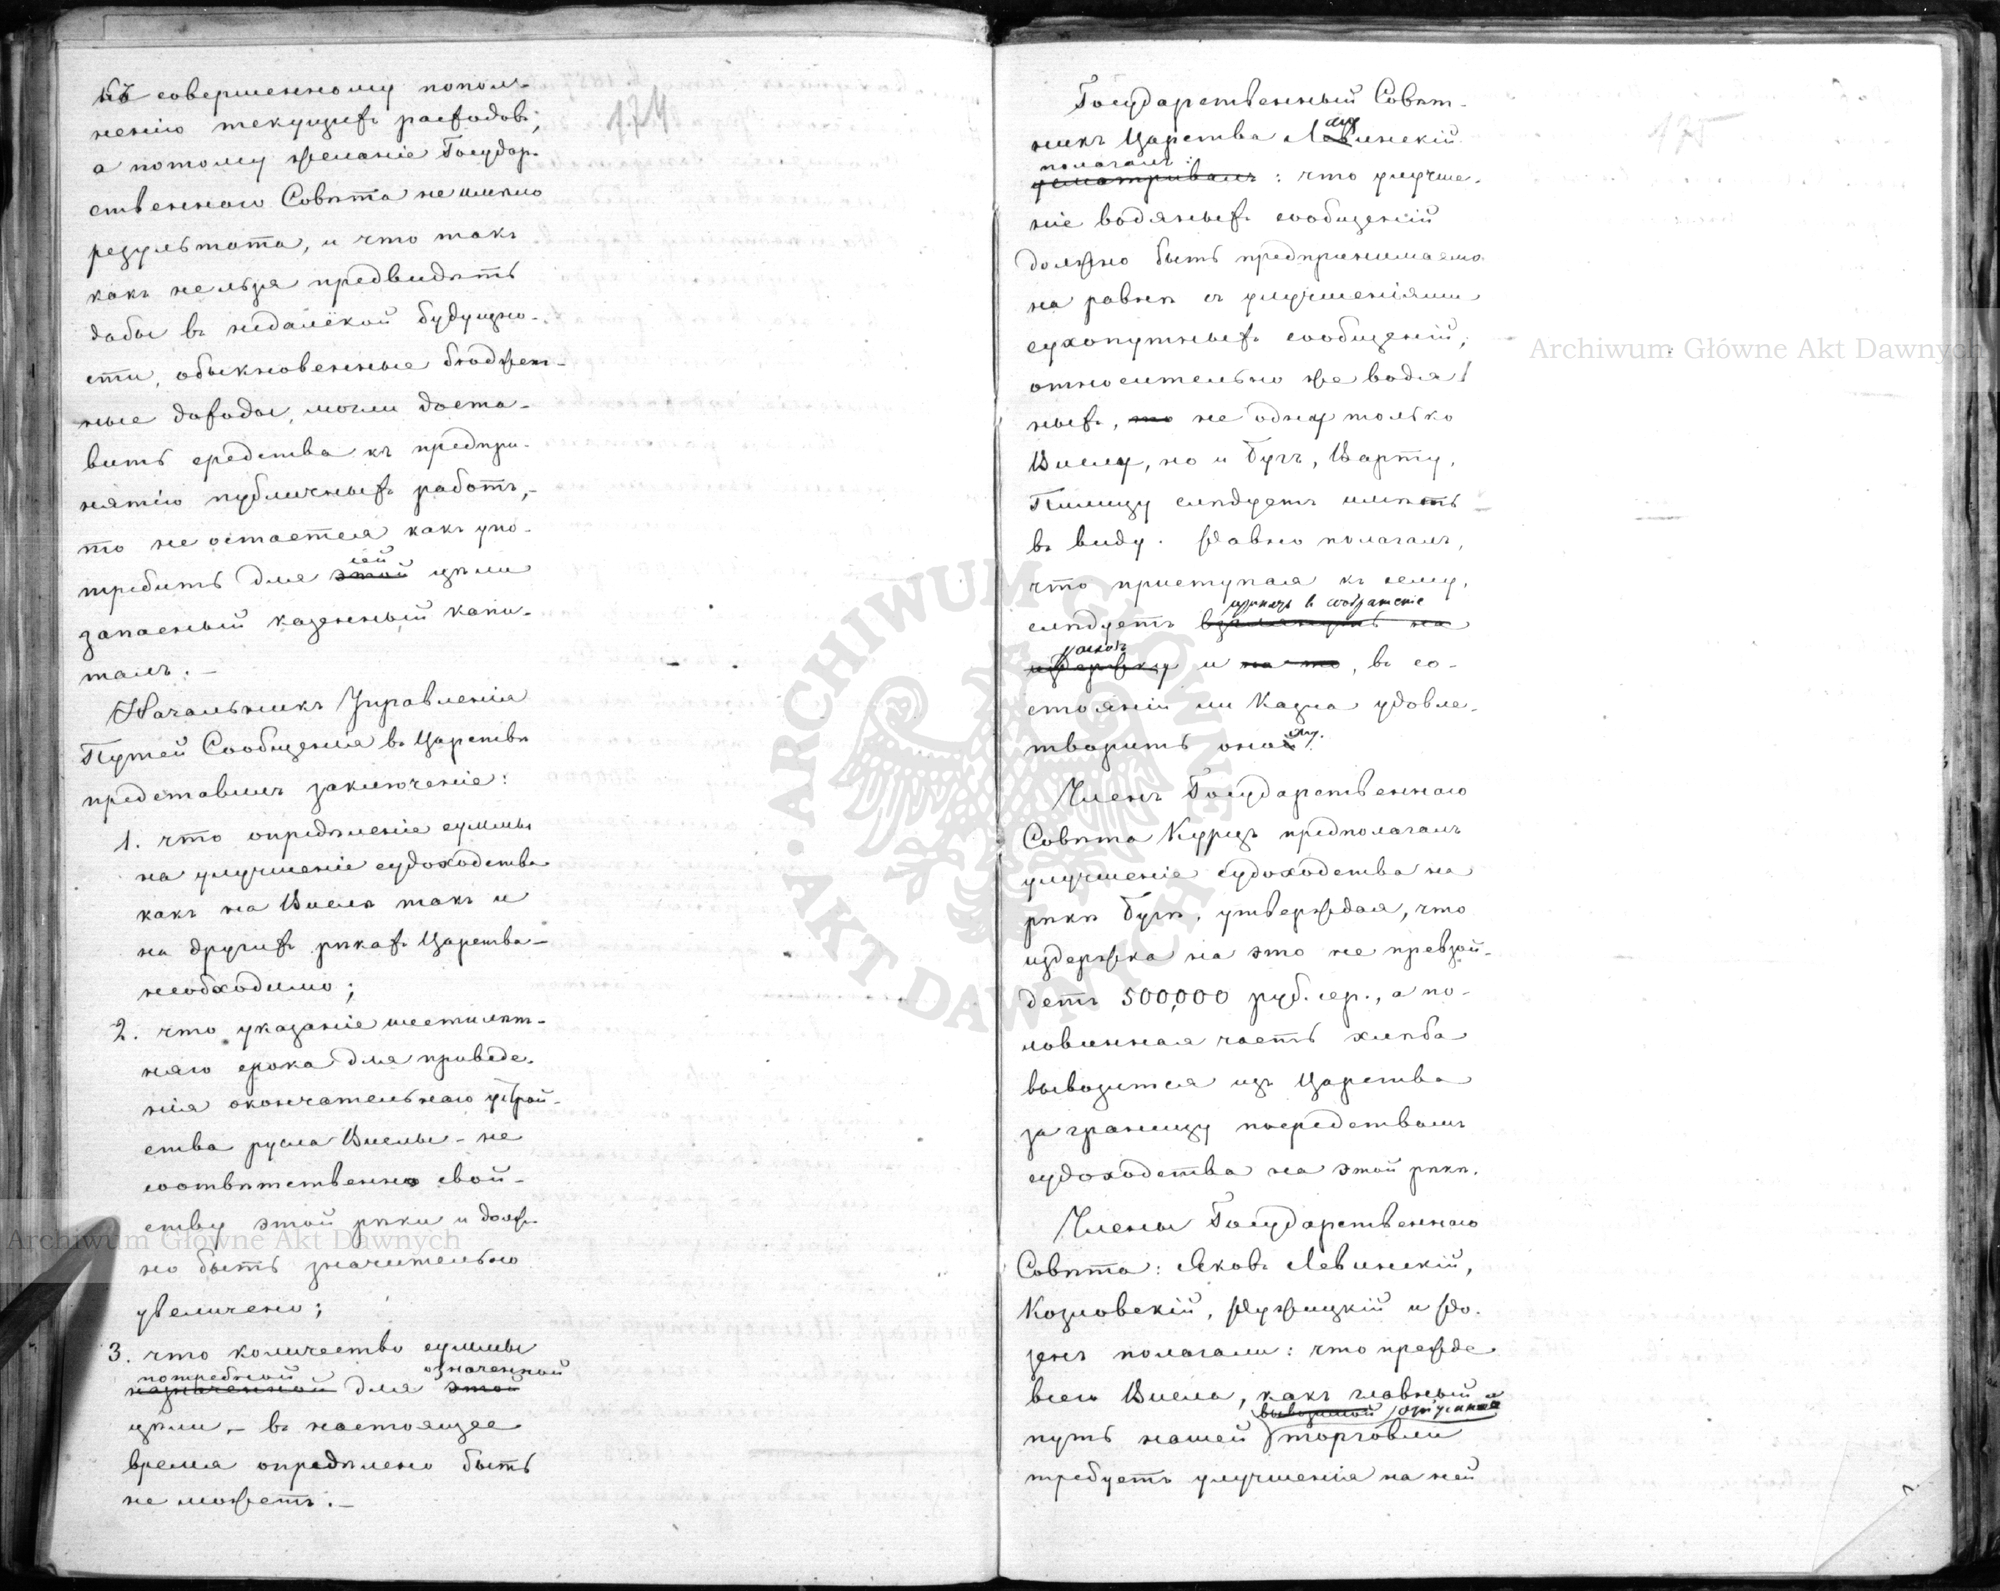 къ совершенному попол-
ненію текущихъ расходовъ;
а потому желаніе Государ-
ственнаго Совѣта не имѣло
результата, и что такъ
какъ нельзя предвидѣть
дабы въ недалёкой будущно-
сти, обыкновенные бюджет-
ные доходы, могли доста-
вить средства къ предпри-
нятію публичныхъ работъ,-
то не остается какъ упо-
сей
требить для этой цѣли
запасный казенный капи-
талъ.-
Начальникъ Управленія
Путей Сообщенія въ Царствѣ
представилъ заключеніе:
1. что опредѣленіе суммы
на улучшеніе судоходства
какъ на Вислѣ такъ и
на другихъ рѣкахъ Царства-
необходимо;
2. что указаніе шестилѣт-
няго срока для приведе-
нія окончательнаго устрой-
ства русла Вислы - не
соотвѣтственно свой-
ству этой рѣки и долж-
но быть значительно
увеличено;
3. что количество суммы
потребной означенной
назначенной для этой
цѣли,- въ настоящее
время опредѣлено быть
не можетъ.-
174
Государственный Совѣт-
никъ Царства
полагалъ:
усматривалъ: что улучше-
ніе водяныхъ сообщеній
должно быть предпринимаемо
на равнѣ съ улучшеніями
сухопутныхъ сообщеній;
относительно же водя-
ныхъ, то не одну только
Вислу, но и Бугъ, Варту,
Пилицу слѣдуетъ имѣть
въ виду. Равно полагалъ,
что приступая къ сему,
принять въ соображеніе
слѣдуетъ взглянуть на
расходъ
издержку и на то, въ со-
стояніи ли Казна удовле-
творить оному.
Членъ Государственнаго
Совѣта Курцъ предполагалъ
улучшеніе судоходства на
рѣкѣ Бугѣ, утверждая, что
издержка на это не превзой-
детъ 500,000 руб. сер., а по-
ловинная часть хлѣба
вывозится изъ Царства
за границу посредствомъ
судоходства на этой рѣкѣ.
Члены Государственнаго
Совѣта: Яковъ Левинскій,
Козловскій, и
полагали: что прежде
всего Висла, какъ главный
вывозимой отпускной
путь нашей торговли
требуетъ улучшенія на ней
175
Archiwum Główne Akt Dawnych
Archiwum Główne Akt Dawnych
ARCHIWUM GŁÓWNE AKT DAWNYCH